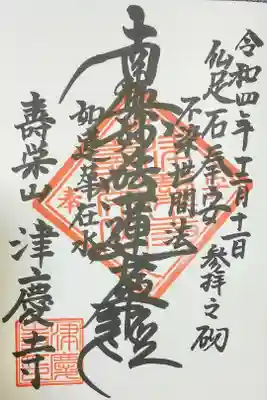 令和四年十二月十一日
仏足石奉安 参拝之砌
不染世間法
南無妙法蓮華経
如蓮華在水
壽栄山 津慶寺
奉
津慶